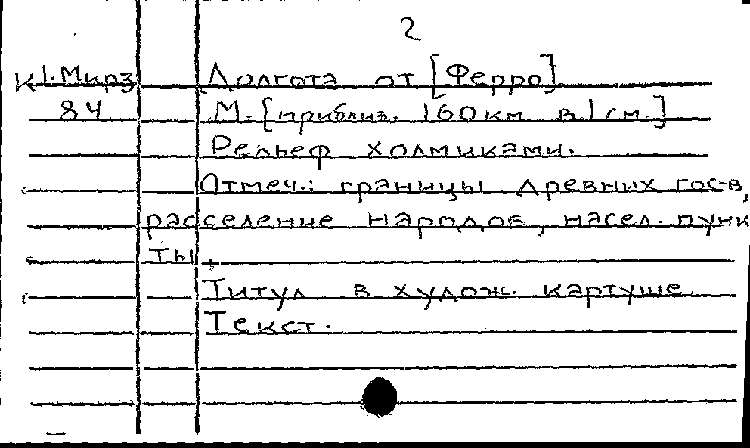 2
К 1. Мирз Долгота от [Ферро]
84 М. [приблиз. 160 км в 1 см.]
Рельеф холмиками.
Отмеч.: границы древних гос-в,
расселение народов, насел. пунк
ты.
Титул в худож. картуше
Текст.